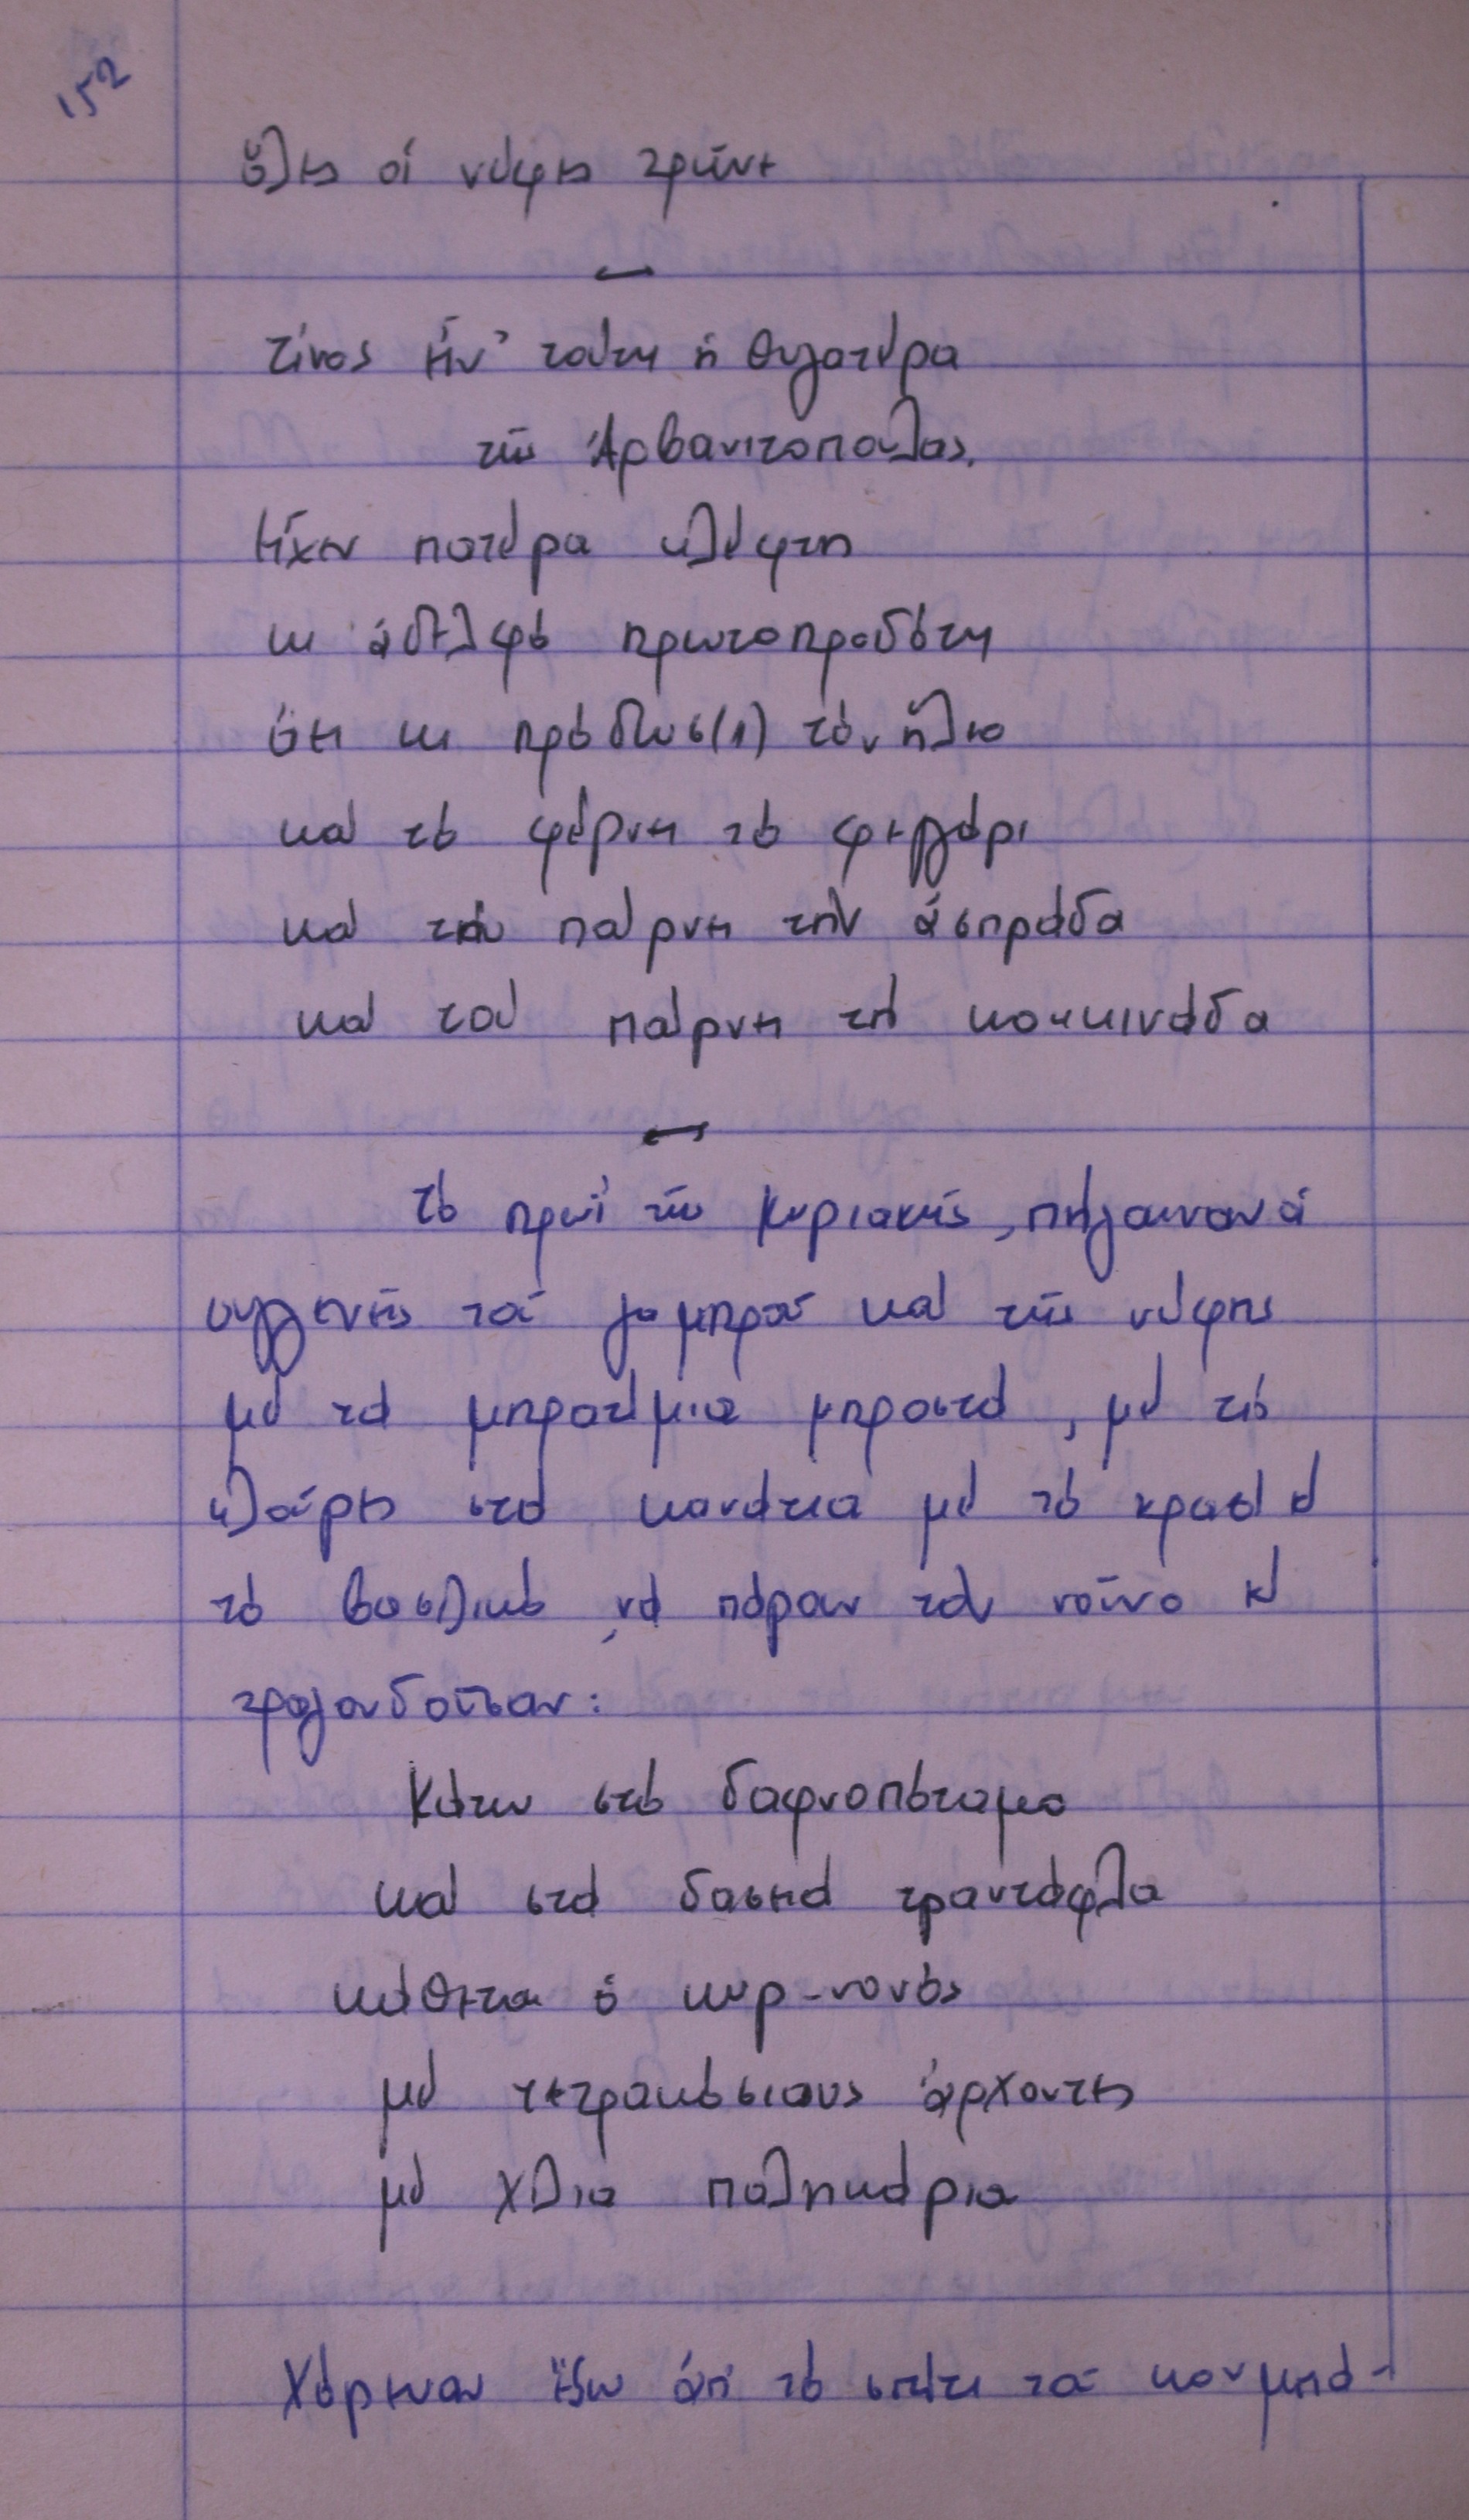 152
ὅλες οἱ νύφες τρῶνε
—
Τίνος εἶν' τούτη ἡ θυγατέρα
τῆς Ἀρβανιτοπούλας.
Εἶχεν πατέρα κλέφτη
κι ἀδελφό πρωτοπροδότη
ὅτι κι πρόδωσ(1) τόν ἥλιο
καί τό φέρνει τό φεγγάρι
καί τοῦ παίρνει τήν ἀσπράδα
καί τοῦ παίρνει τή κοκκινάδα
—
Τό πρωί τῆς Κυριακῆς, πήγαιναν οἱ
συγγενῆς τοῦ γαμπροῦ καί τῆς νύφης
μέ τά μπρατίμια μπροστά, μέ τίς
κλάρες στά κανάτια μέ τό κρασί κέ
τό βασιλικό, νά πάρουν τόν νοῦνο κέ
τραγουδοῦσαν:
Κάτω στό δαφνοπόταμο
καί στά δασειά τραντάφλα
κάθεται ὁ κυρ-νονός
μέ τετρακόσιους ἄρχοντες
μέ χίλια παληκάρια
Χόρευαν ἔξω ἀπ' τό σπίτι τοῦ κουμπά-